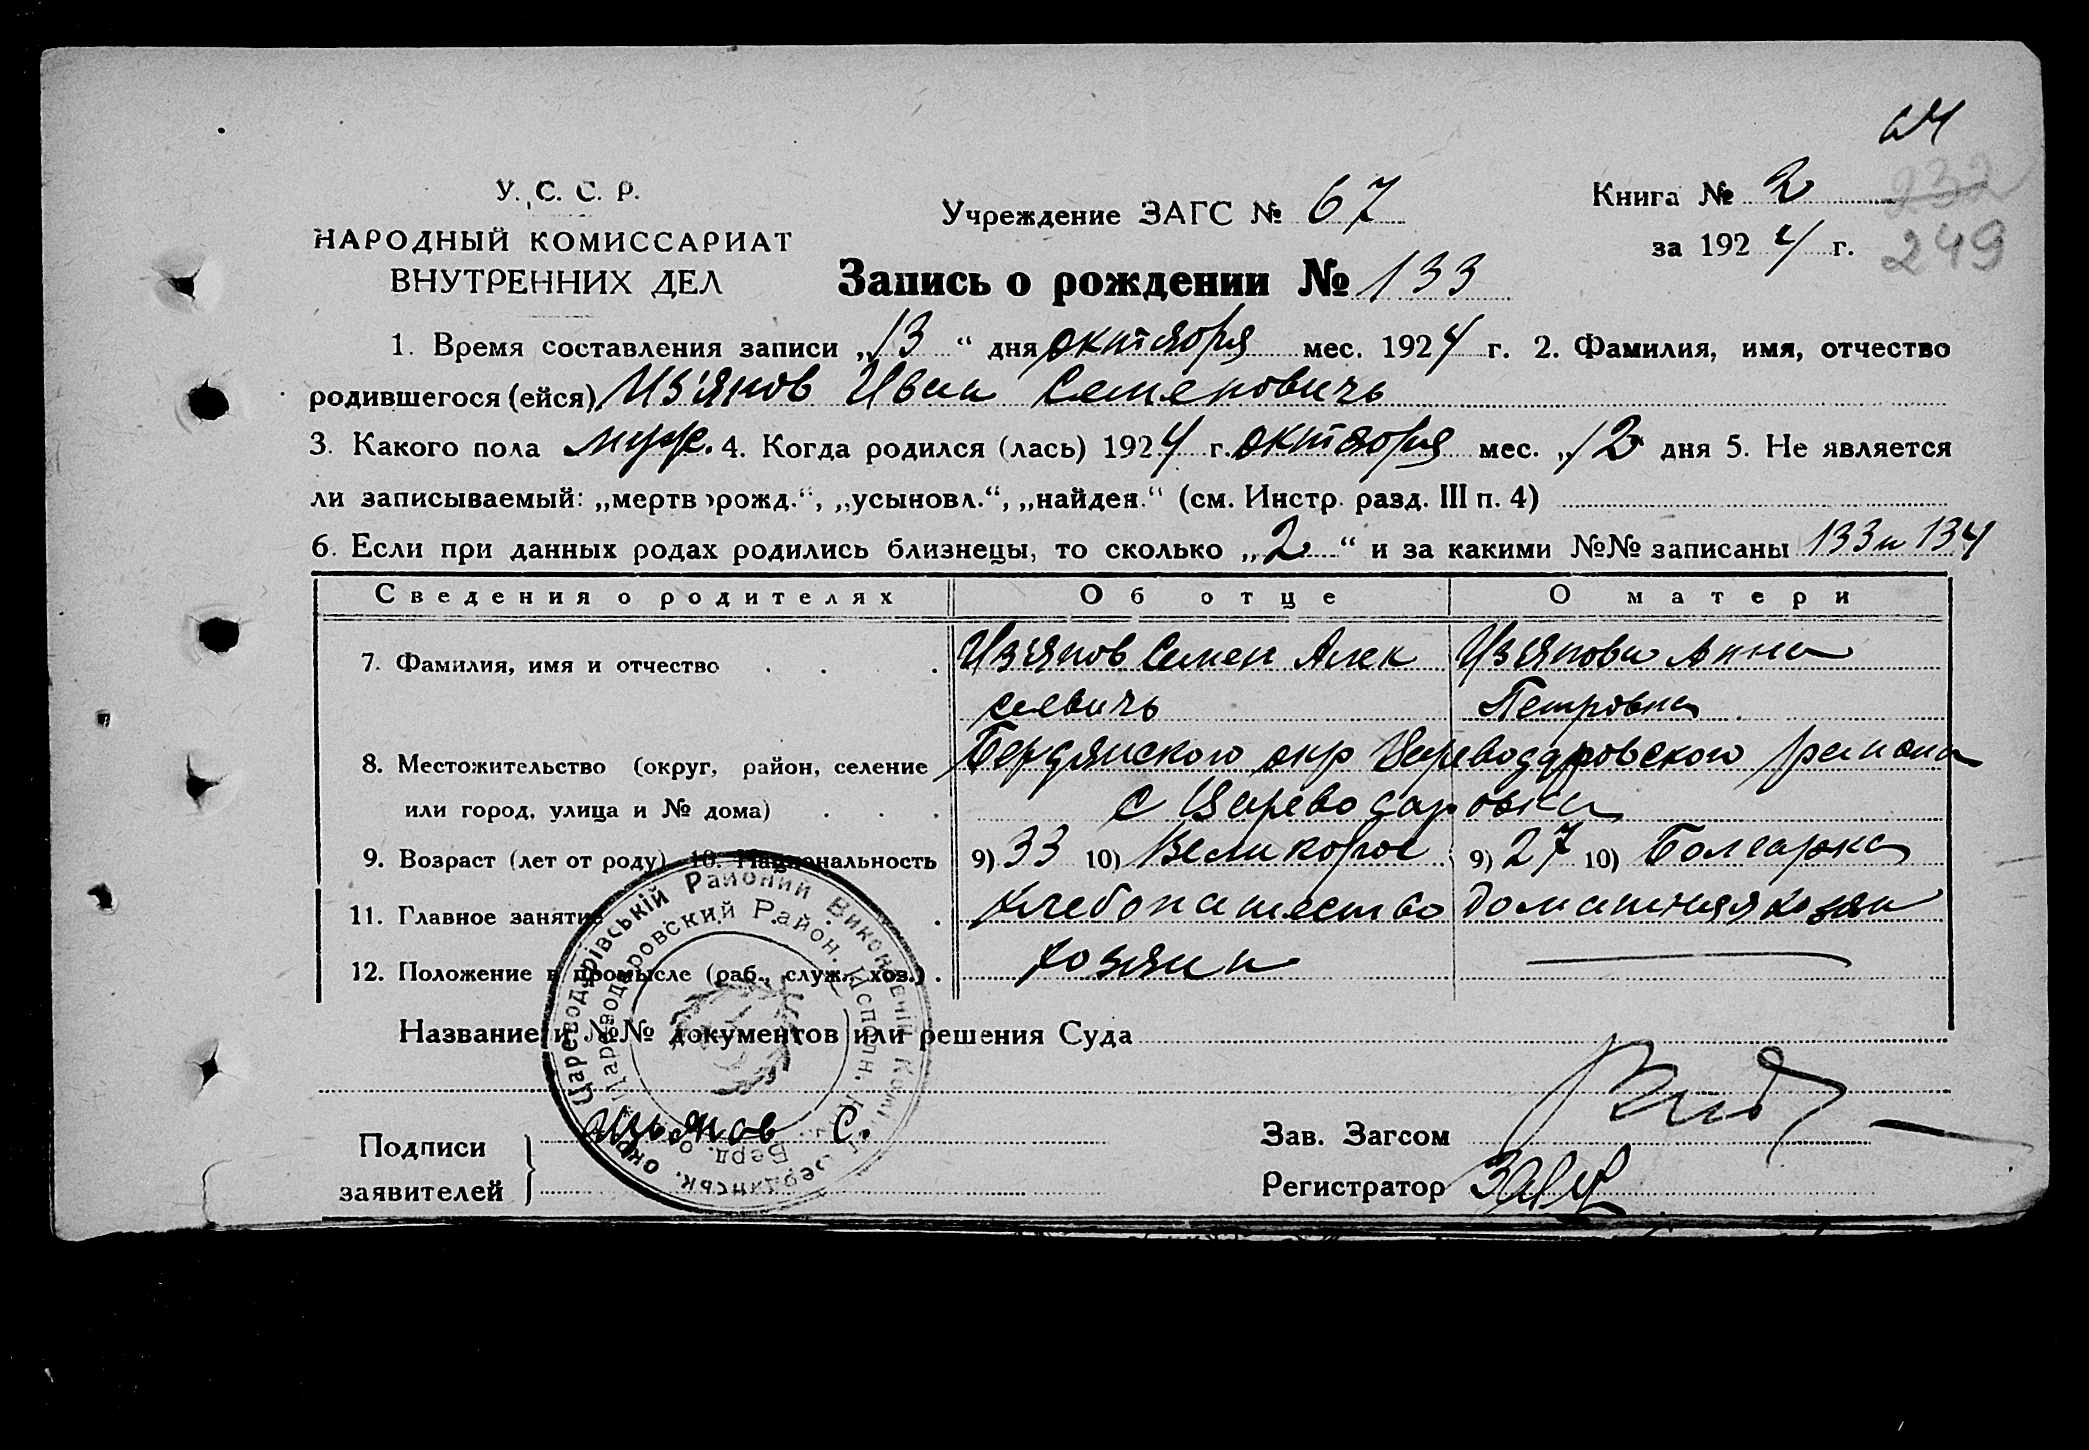 64
У. С. С. Р.
НАРОДНЫЙ КОМИССАРИАТ
ВНУТРЕННИХ ДЕЛ
Учреждение ЗАГС № 67
Книга № 2
232
за 1924 г.
249
Запись о рождении № 133
1. Время составления записи „13“ дня октября мес. 1924 г. 2. Фамилия, имя, отчество
родившегося (ейся) Из'янов Иван Семеновичь
3. Какого пола муж. 4. Когда родился (лась) 1924 г. октября мес. „12 дня 5. Не является
ли записываемый: „мертворожд.“, „усыновл.“, „найден.“ (см. Инстр. разд. III п. 4)
6. Если при данных родах родились близнецы, то сколько „2“ и за какими №№ записаны 133 и 134
Сведения о родителях Об отце О матери
7. Фамилия, имя и отчество . . . Из'янов Семен Алек Из'янова Анна
сеевичь Петровна
8. Местожительство (округ, район, селение Бердянского окр Цареводаровского района
или город, улица и № дома) . . . с Цареводаровка
9. Возраст (лет от роду) 10. Национальность 9) 33 10) Великорос 9) 27 10) Болгарка
11. Главное занятие . Хлебопашество домашняя хозяй
12. Положение в промысле (раб., служ., хоз.) . хозяин
Название и №№ документов или решения Суда
Цареводарівській Районий Виконавчій Комі Бердянськ. окр
Цареводаровский Район. Исполн. К Берд. о
Подписи
заявителей
Изьянов С.
Зав. Загсом
Регистратор